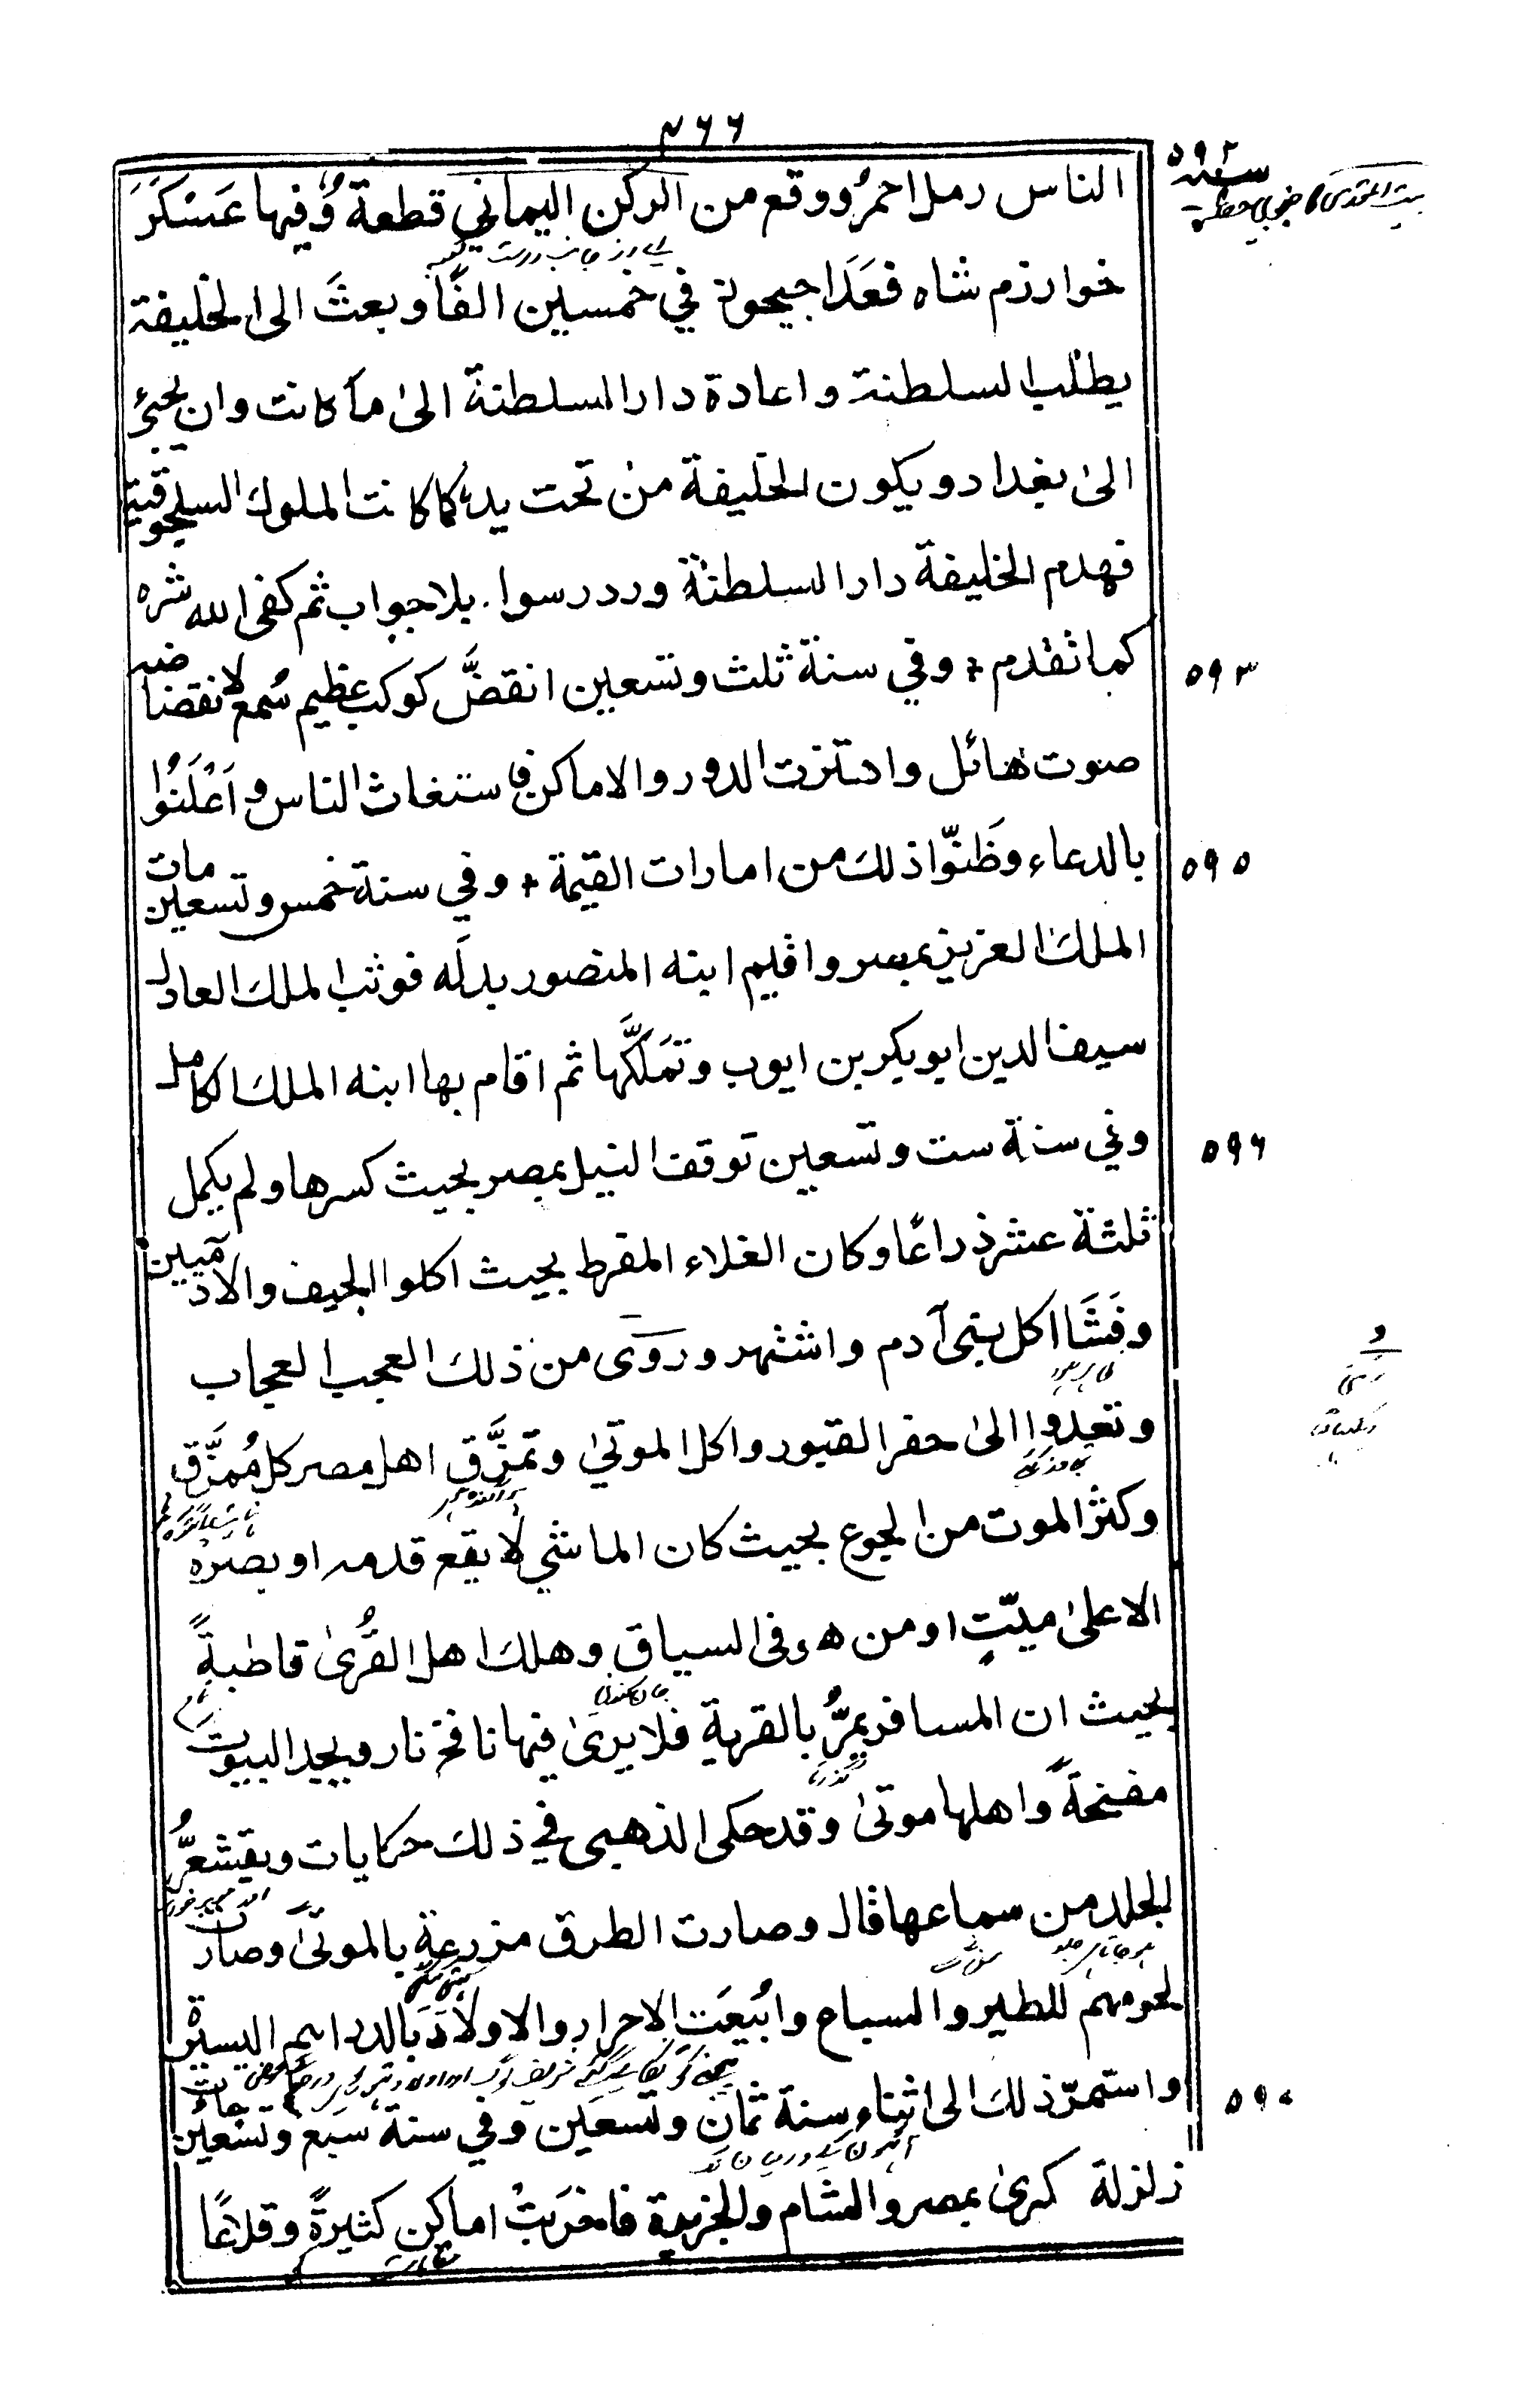 ٤٦٦
الناس رمل احمرُ ووقع من الركن اليماني قطعةٌ وفيها عَسْكَرَ
خوارزم شاه فعَدَا جيحون في خمسين الفًا وبعثَ الى الخليفة
يطلب السلطنة واعادة دار السلطنة الىٰ ما كانت وان يجئ
الىٰ بغداد ويكون الخليفة من تحت يده كما كانت الملوك السلجوقية
فهدم الخليفة دار السلطنة ورد رسوله بلا جواب ثم كفى الله شره
كما تقدم + وفي سنة ثلث وتسعين انقضَّ كوكب عظيم سُمع لانقضاضه
صوت هائل واهتزت الدور والاماكن فاستغاث الناس واَعْلَنُوا
بالدعاء وظَنّوا ذلك من امارات القيمة + وفي سنة خمس وتسعين مات
الملك العزيز بمصر واقيم ابنه المنصور بدلَه فوثب الملك العادل
سيف الدين ابو بكر بن ايوب وتمَلَّكَها ثم اقام بها ابنه الملك الكامل
وفي سنة ست وتسعين توقف النيل بمصر بحيث كسرها ولم يكمل
ثلثة عشر ذراعًا وكان الغلاء المفرط بحيث اكلوا الجيف والادميين
وفَشَا اكل بنى آدم واشتهر وروَى من ذلك العجب العجاب
وتعدوا الىٰ حفر القبور واكل الموتىٰ وتمزَّق اهل مصر كل مُمزَّق
وكثرُ الموت من الجوع بحيث كان الماشي لا يقع قدمه او بصره
الا علىٰ ميّتٍ او من هو فى السياق وهلك اهل القُرىٰ قاطبةً
بحيث ان المسافر يمرُّ بالقرية فلا يرىٰ فيها نافخ نار ويجد البيوت
مفتحةً واهلها موتىٰ وقد حكى الذهبي في ذلك حكايات ويقشعرُّ
الجلد من سماعها قال وصارت الطرق مزرعة بالموتىٰ وصارت
لحومهم للطير والسباع وابُيعَت الاحرار والاولادَ بالدراهم اليسيرة
واستمرّ ذلك الى اثناء سنة ثمان وتسعين وفي سنة سبع وتسعين جائت
زلزلة كبرىٰ بمصر والشام والجزيرة فاخرَبتْ اماكن كثيرةً وقلاعًا
سنة ٥٩٢
٥٩٣
٥٩٥
٥٩٦